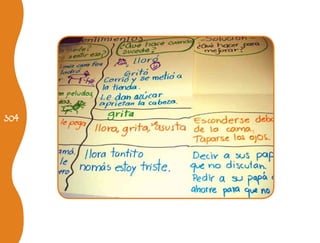 304
¿Qué hace cuando
sucede?
Solución
¿qué hacer para
mejorar?
lloró
Gritó
Corrió y se metió a
la tienda.
Le dan azúcar
aprietan la cabeza.
peludos
grita
le pega
llora, grita, asusta
Esconderse debajo
de la cama.
Taparse los ojos.
llora tontito
nomás estoy triste.
le
Decir a sus pap
que no discutan.
Pedir a su papá
ahorre para que no